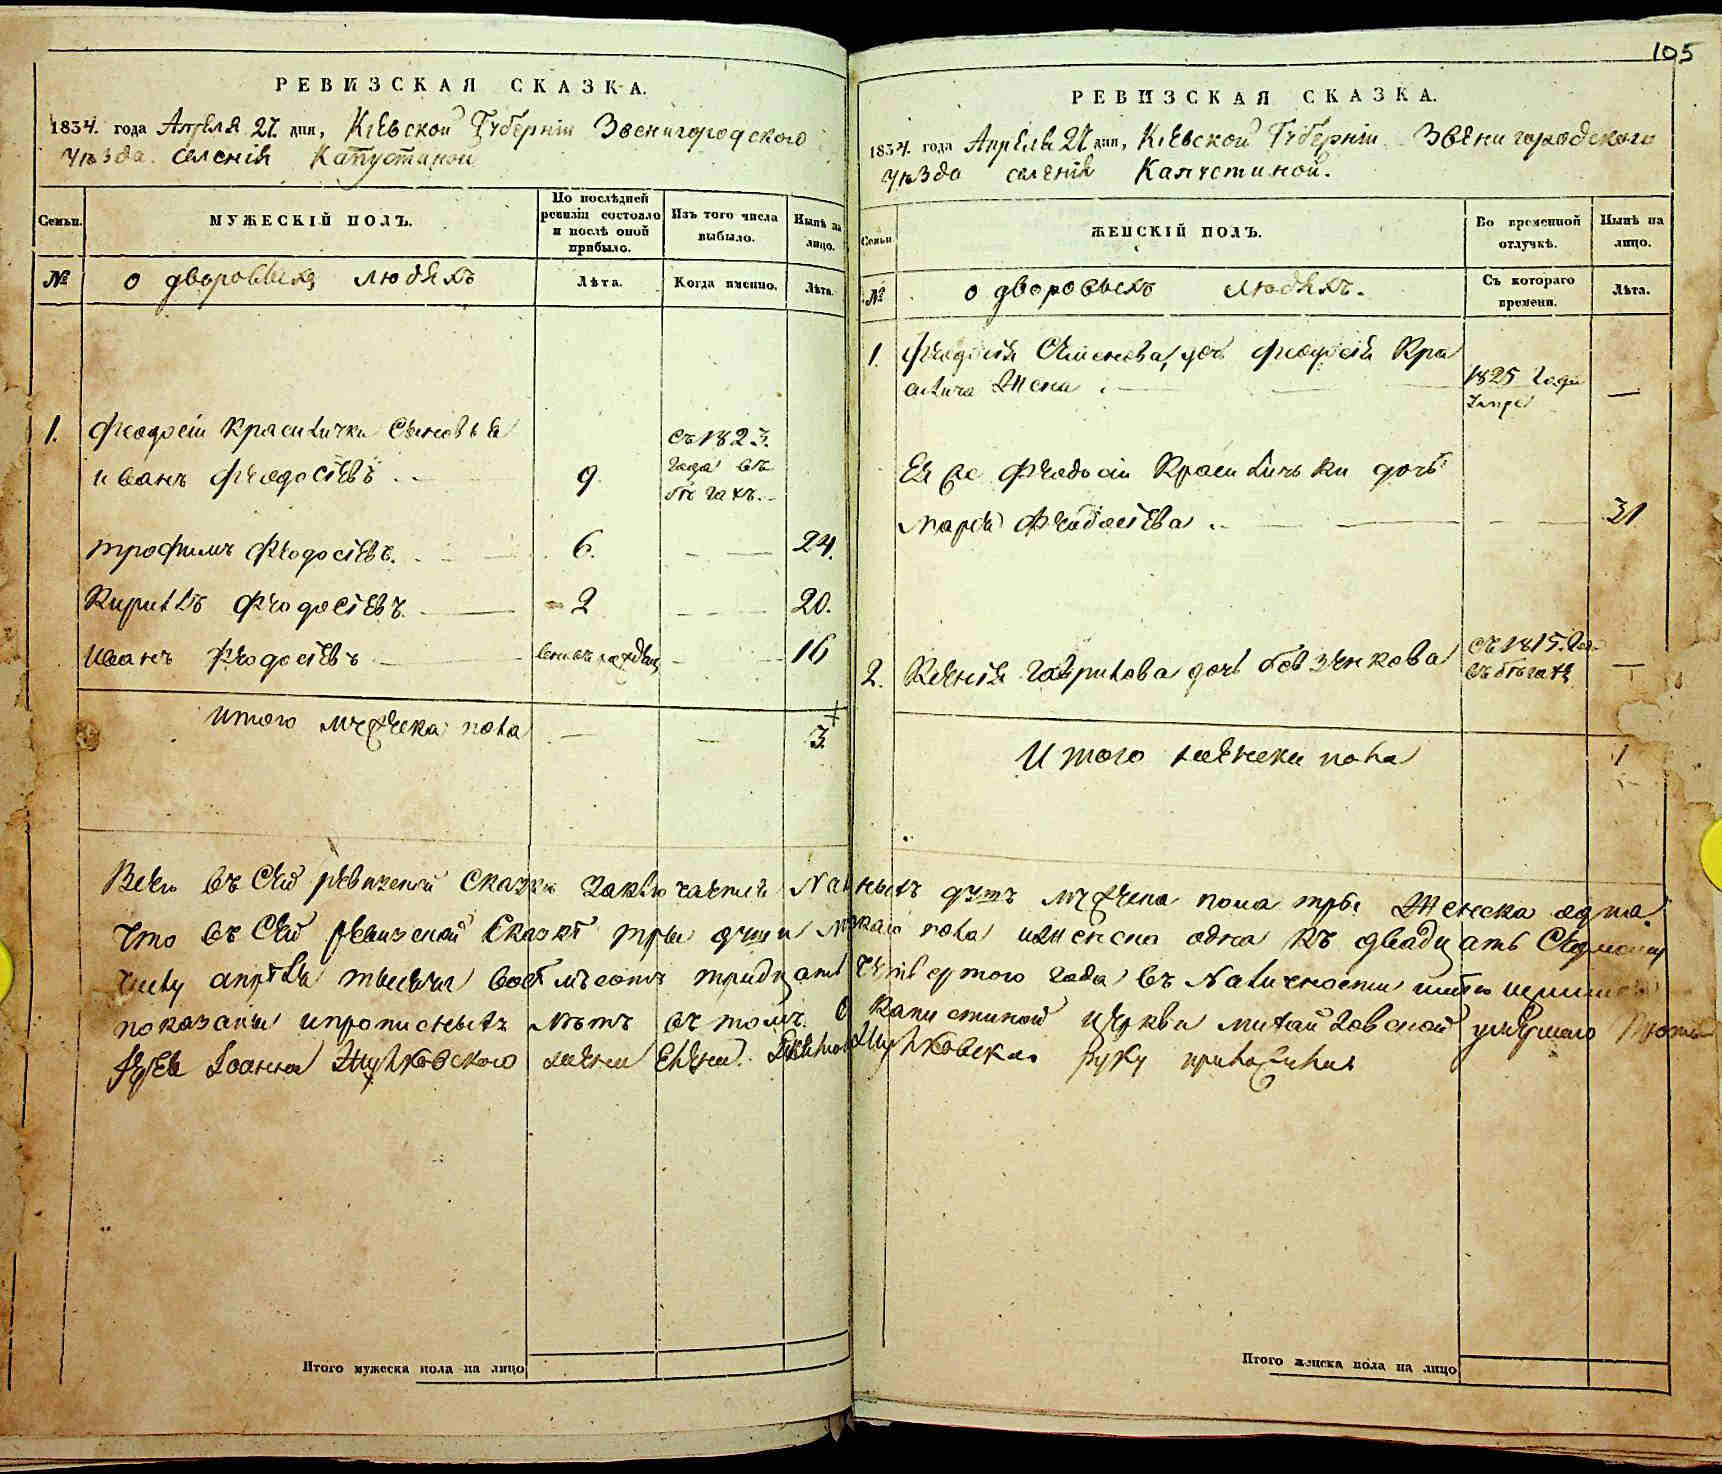 РЕВИЗСКАЯ СКАЗКА.
1834. года Апреля 27. дня, Кіевской Губерніи Звенигородского
уѣзда. селенія Капустиной
Семьи.
МУЖЕСКІЙ ПОЛЪ.
По послѣдней ревизіи состояло и послѣ оной прибыло.
Изъ того числа выбыло.
Нынѣ на лицо.
№
о дворовыхъ людяхъ
Лѣта.
Когда именно.
Лѣта.
1. Феодосія Красилички сыновья
съ 1823.
иванъ Феодосіевъ 9. года въ
бѣгахъ.
трофимъ Феодосіевъ. 6. 24.
Кирилъ Феодосіевъ 2 20.
Иванъ Феодосіевъ 16
Итого мужеска пола 3
105
РЕВИЗСКАЯ СКАЗКА.
1834. года Апреля 27 дня, Кіевской Губерніи Звенигородского
уѣзда селенія Капустиной.
Семьи
ЖЕНСКІЙ ПОЛЪ.
Во временной отлучкѣ.
Нынѣ на лицо.
№
о дворовыхъ людяхъ.
Съ котораго времени.
Лѣта.
1. Феодосія Семенова дочь Феодосія Кра
сича жена 1825 года
умре
Ея же Феодосія дочь
Марія Феодосіева. 31
2. Ксенія Гаврилова дочь съ 1815. го
въ бѣгахъ
Итого женска пола 1
Всего въ сей ревизской сказки заключается наличныхъ душъ мужеска пола три женска одна
что въ сей ревизской сказкѣ три души мужска пола и женска одна къ двадцать седмому
числу апрѣля тысяча восѣмъсотъ тридцать четвертого года въ наличности
показаны и прописныхъ нѣтъ въ томъ Капустиной церкви Михайловской умершаго
Іоанна Жушковского жена Елена Жушковска руку приложила
Итого мужеска пола на лицо
Итого женска пола на лицо